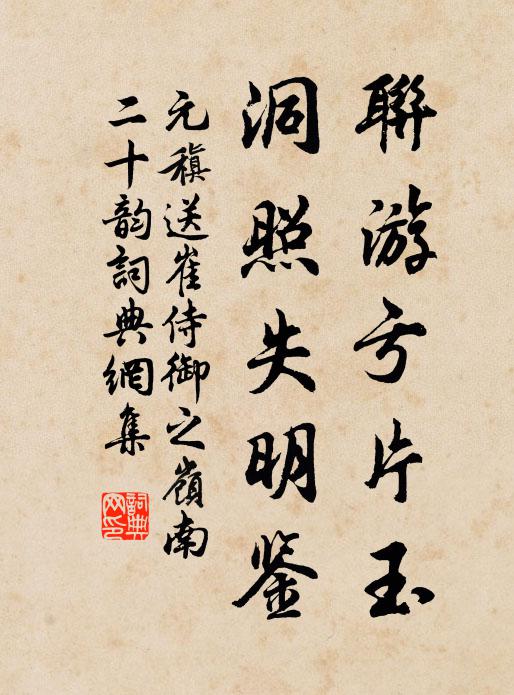 聯游亏片玉
洞照失明鉴
元稹送崔侍御之嶺南
二十韵詞典網集
詞典網印